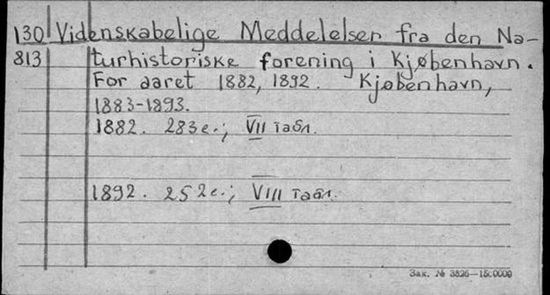 130 Videnskabelige Meddelelser fra den Na-
813 turhistoriske forening i Kjøbenhavn.
For aaret 1882, 1892. Kjøbenhavn,
1883-1893.
1882. 283 с.; VII табл.
1892. 252 с.; VIII табл.
Зак. № 3826—15.0000